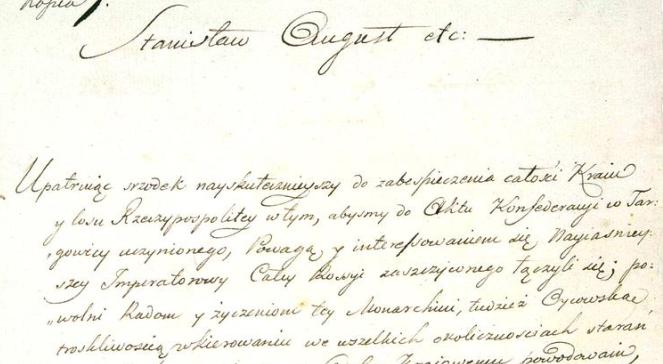 Kopia
Stanisław August etc: —
Upatruiąc srzodek nayskutecznieyszy do zabespieczenia całości Kraiu
y losu Rzeczypospolitey w tym, abyśmy do Aktu Konfederacyi w Tar-
„gowicy uczynionego, Powagą y interessowaniem się Nayiaśniey-
szey Imperatorowy Całey Rossyi zaszczyconego łączyli się; po-
„wolni Radom y życzeniom tey Monarchini, tudzież Oycowską
troskliwością w kierowaniu we wszelkich okolicznościach starań
powodowani,